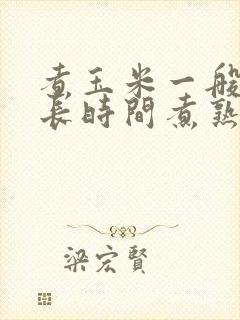 煮玉米一般
长時間煮熟
梁宏賢